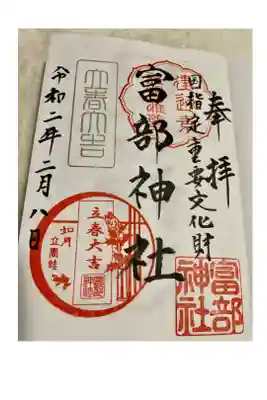 奉拝
国指定重要文化財
富部神社
令和二年二月八日
立春大吉
立春大吉
如月
富部
神社
富部
神社